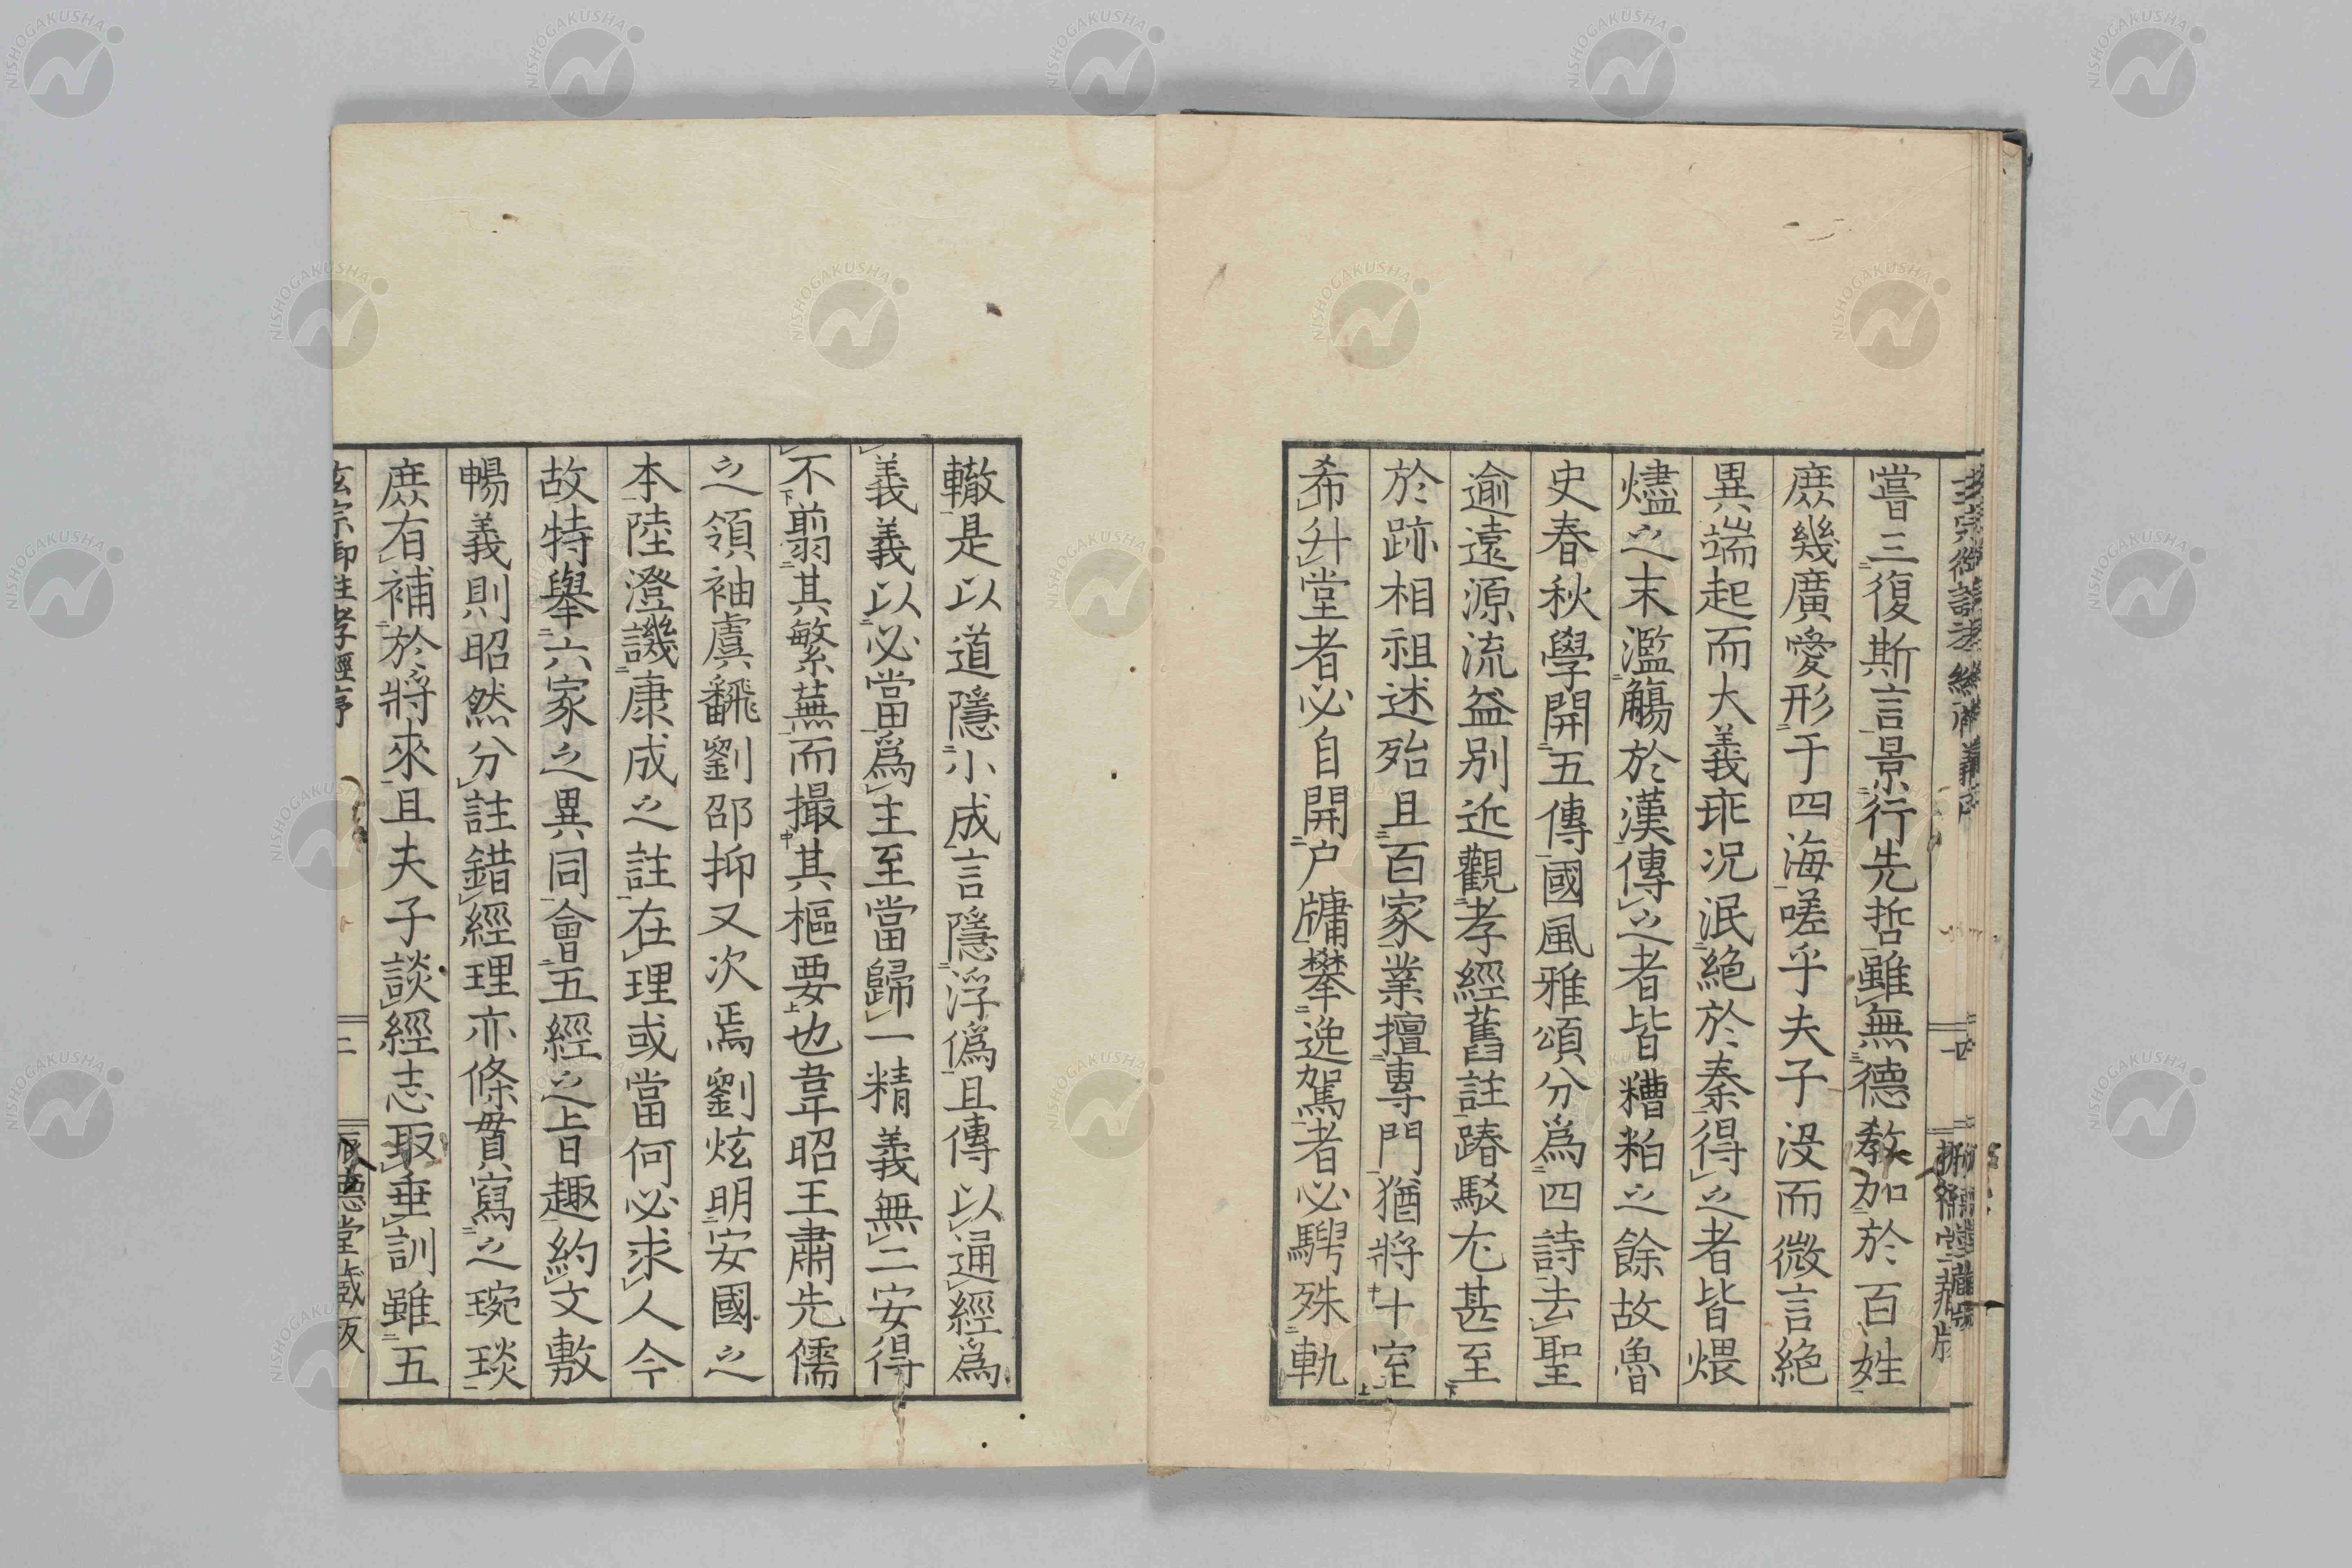 嘗三復斯言景行先哲雖無德教加於百姓
庶幾廣愛形于四海嗟乎夫子没而微言絶
異端起而大義乖况泯絶於秦得之者皆煨
燼之末濫觴於漢傳之者皆糟粕之餘故魯
史春秋學開五傳國風雅頌分爲四詩去聖
逾遠源流益别近觀孝經舊註踳駁尤甚至
於跡相祖述殆且百家業擅專門猶將十室
希升堂者必自開户牖攀逸駕者必騁殊軌
轍是以道隱小成言隱浮僞且傳以通經爲
義義以必當爲主至當歸一精義無二安得
不翦其繁蕪而撮其樞要也韋昭王肅先儒
之領袖虞飜劉邵抑又次焉劉炫明安國之
本陸澄譏康成之註在理或當何必求人今
故特舉六家之異同會五經之旨趣約文敷
暢義則昭然分註錯經理亦條貫寫之琬琰
庶有補於將來且夫子談經志取垂訓雖五
玄宗御註孝經序
二
NISHOGAKUSHA